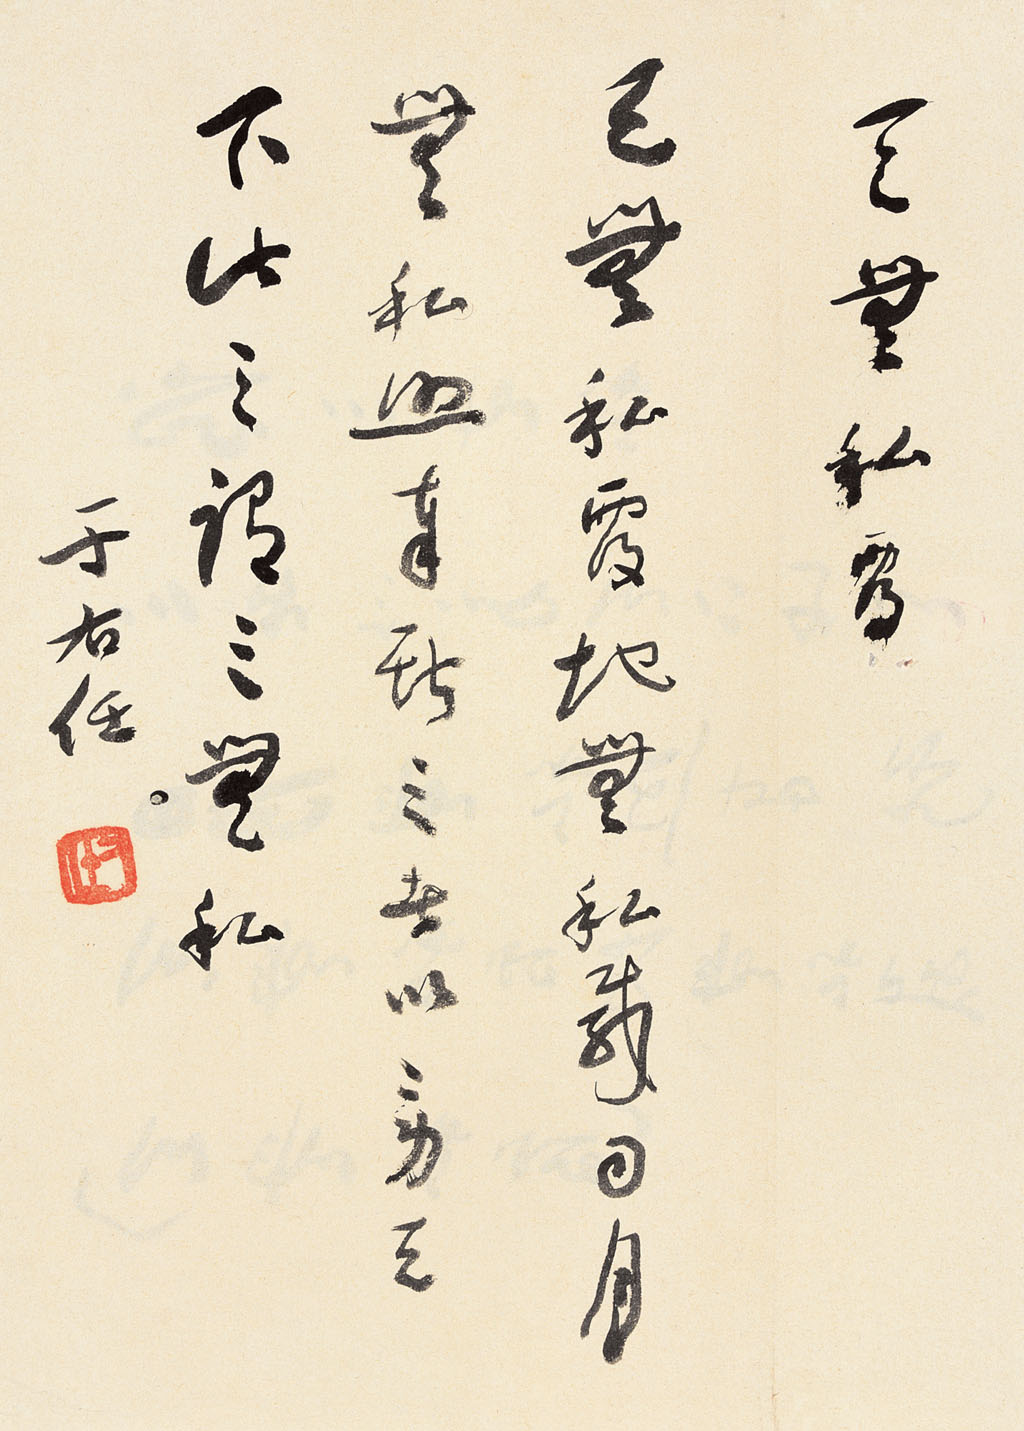 天無私
天無私覆地無私載日月
無私照奉斯三者以勞天
下此之謂三無私
于右任